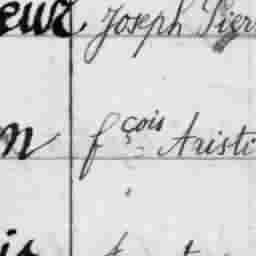 eur Joseph Pier
n fçois Aristi
is